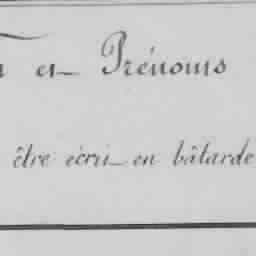 et Prénoms
être écrit en bâtarde